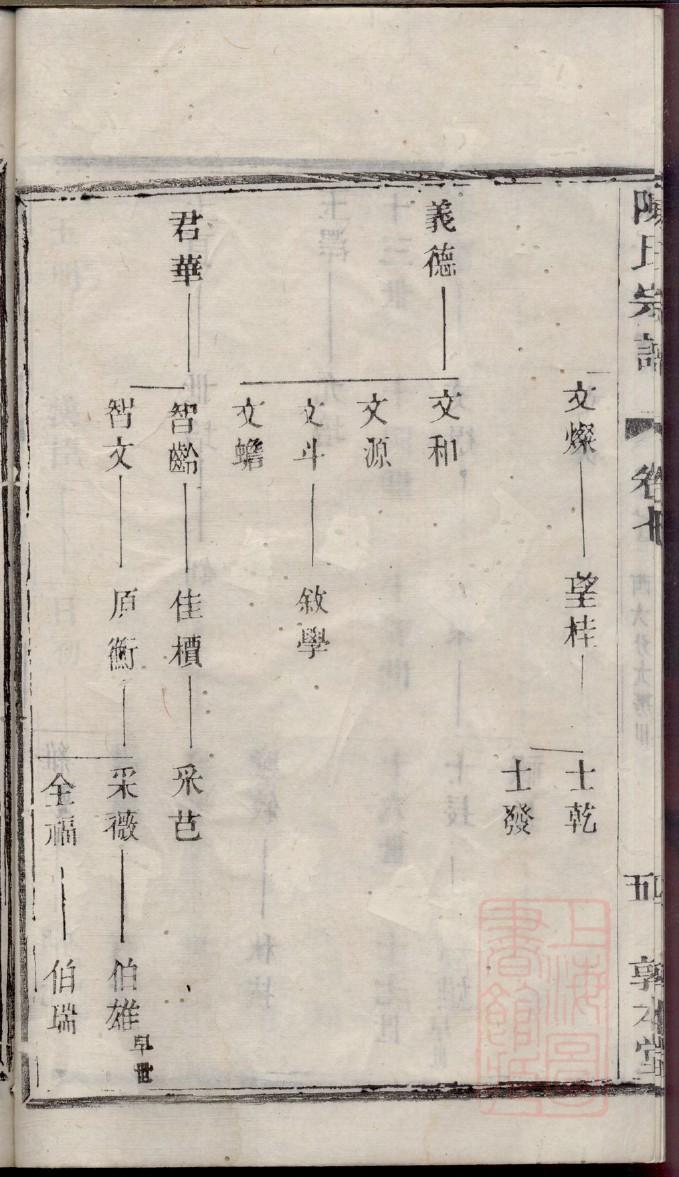 陳氏宗譜
卷
五
敦本堂
文燦
望桂
士乾
士發
義德
文和
文源
文斗
敘學
文蟾
君華
智齡
佳檟
采芑
智文
原衡
采薇
伯雄
早世
全福
伯瑞
上海圖書館藏